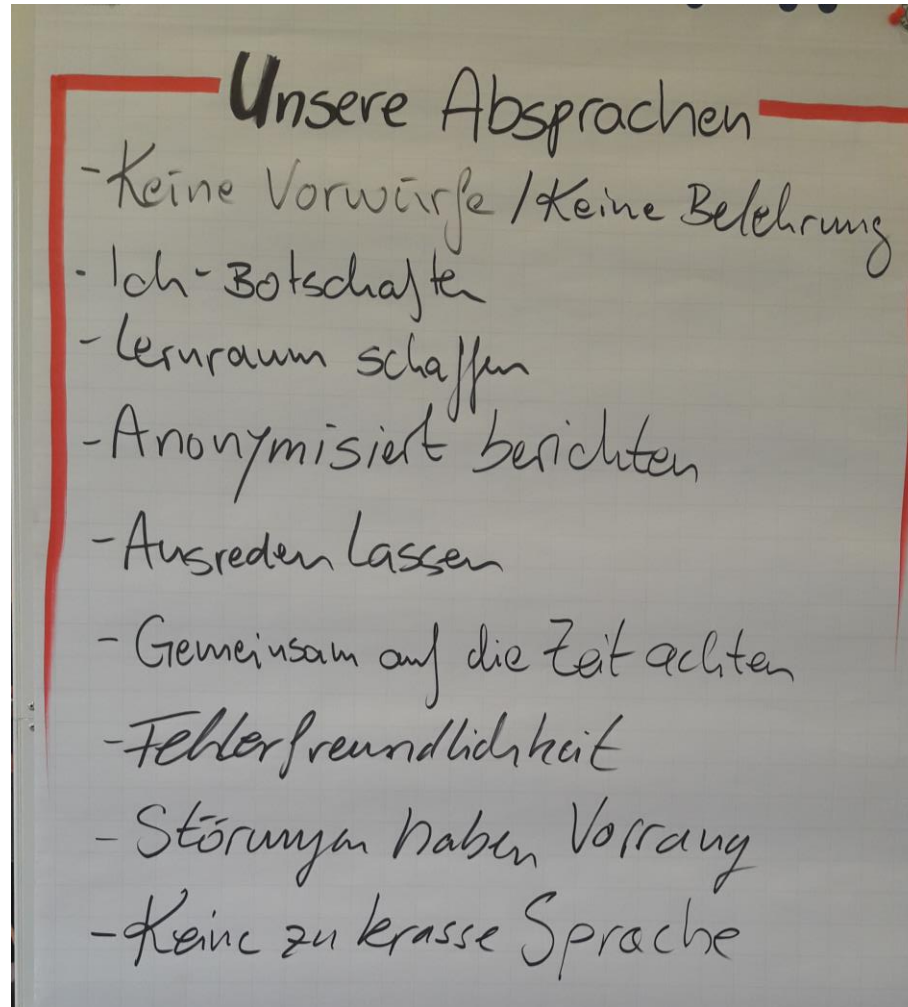 Unsere Absprachen
- Keine Vorwürfe / Keine Belehrung
- Ich-Botschaften
- Lernraum schaffen
- Anonymisiert berichten
- Ausreden lassen
- Gemeinsam auf die Zeit achten
- Fehlerfreundlichkeit
- Störungen haben Vorrang
- Keine zu krasse Sprache